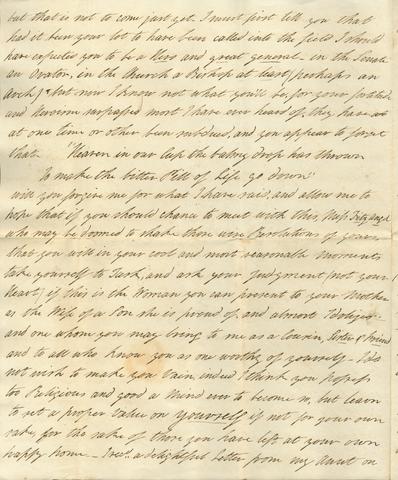 but that is not to come just yet. I must first tell you that
had it been your lot to have been called into the field I should
have expected you to be a Hero and great general - in the Senate
an Orator, in the Church a Bishop at least (perhaps an
Arch) but now I know not what you'll be, for your
and Heroism surpassed most I have heard of, they have
at one time or other been subdued, and you appear to forget
that "Heaven in our Cup the balmy drop has thrown
To make the bitter Pill of Life go down"
will you forgive me for what I have said, and allow me to
hope that if you should chance to meet with this, Miss
who may be doomed to shake those wise Resolutions of yours
that you will in your cool and most reasonable moments
take yourself to Task, and ask your Judgment (not your
Heart) if this is the Woman you can present to your Mother
as the Wife of a Son she is proud of, and almost Idolizes -
and one whom you may bring to me as a Cousin, Sister & Friend
and to all who know you as one worthy of yourself - I do
not wish to make you vain, indeed I think you possess
too Religious and good a Mind ever to become so, but learn
to set a proper value on yourself if not for your own
sake, for the sake of those you have left at your own
happy home - I recd. a delightful Letter from my Aunt on